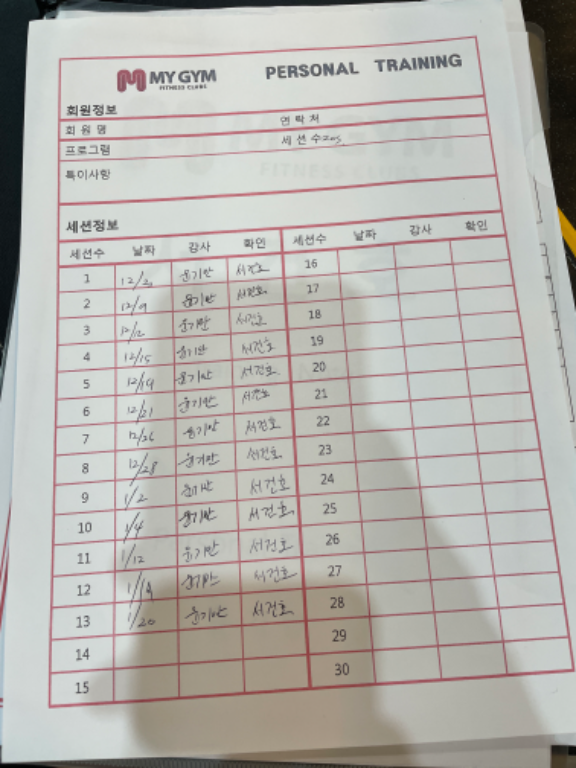 MY GYM PERSONAL TRAINING
FITNESS CLUBS
회원정보
회원명 연락처
프로그램 세션수 20s
특이사항
세션정보
세션수 날짜 강사 확인 세션수 날짜 강사 확인
1 윤기만 서건호 16
2 12/9 윤기만 서건호 17
3 12/12 윤기만 서건호 18
4 12/15 윤기만 서건호 19
5 12/19 윤기만 서건호 20
6 12/21 윤기만 서건호 21
7 12/26 윤기만 서건호 22
8 12/28 윤기만 서건호 23
9 1/2 윤기만 서건호 24
10 1/4 윤기만 서건호 25
11 1/12 윤기만 서건호 26
12 1/19 윤기만 서건호 27
13 1/20 윤기만 서건호 28
14 29
15 30